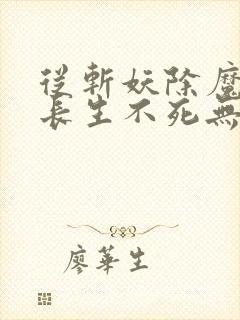 從斬妖除魔
長生不死無
廖華生